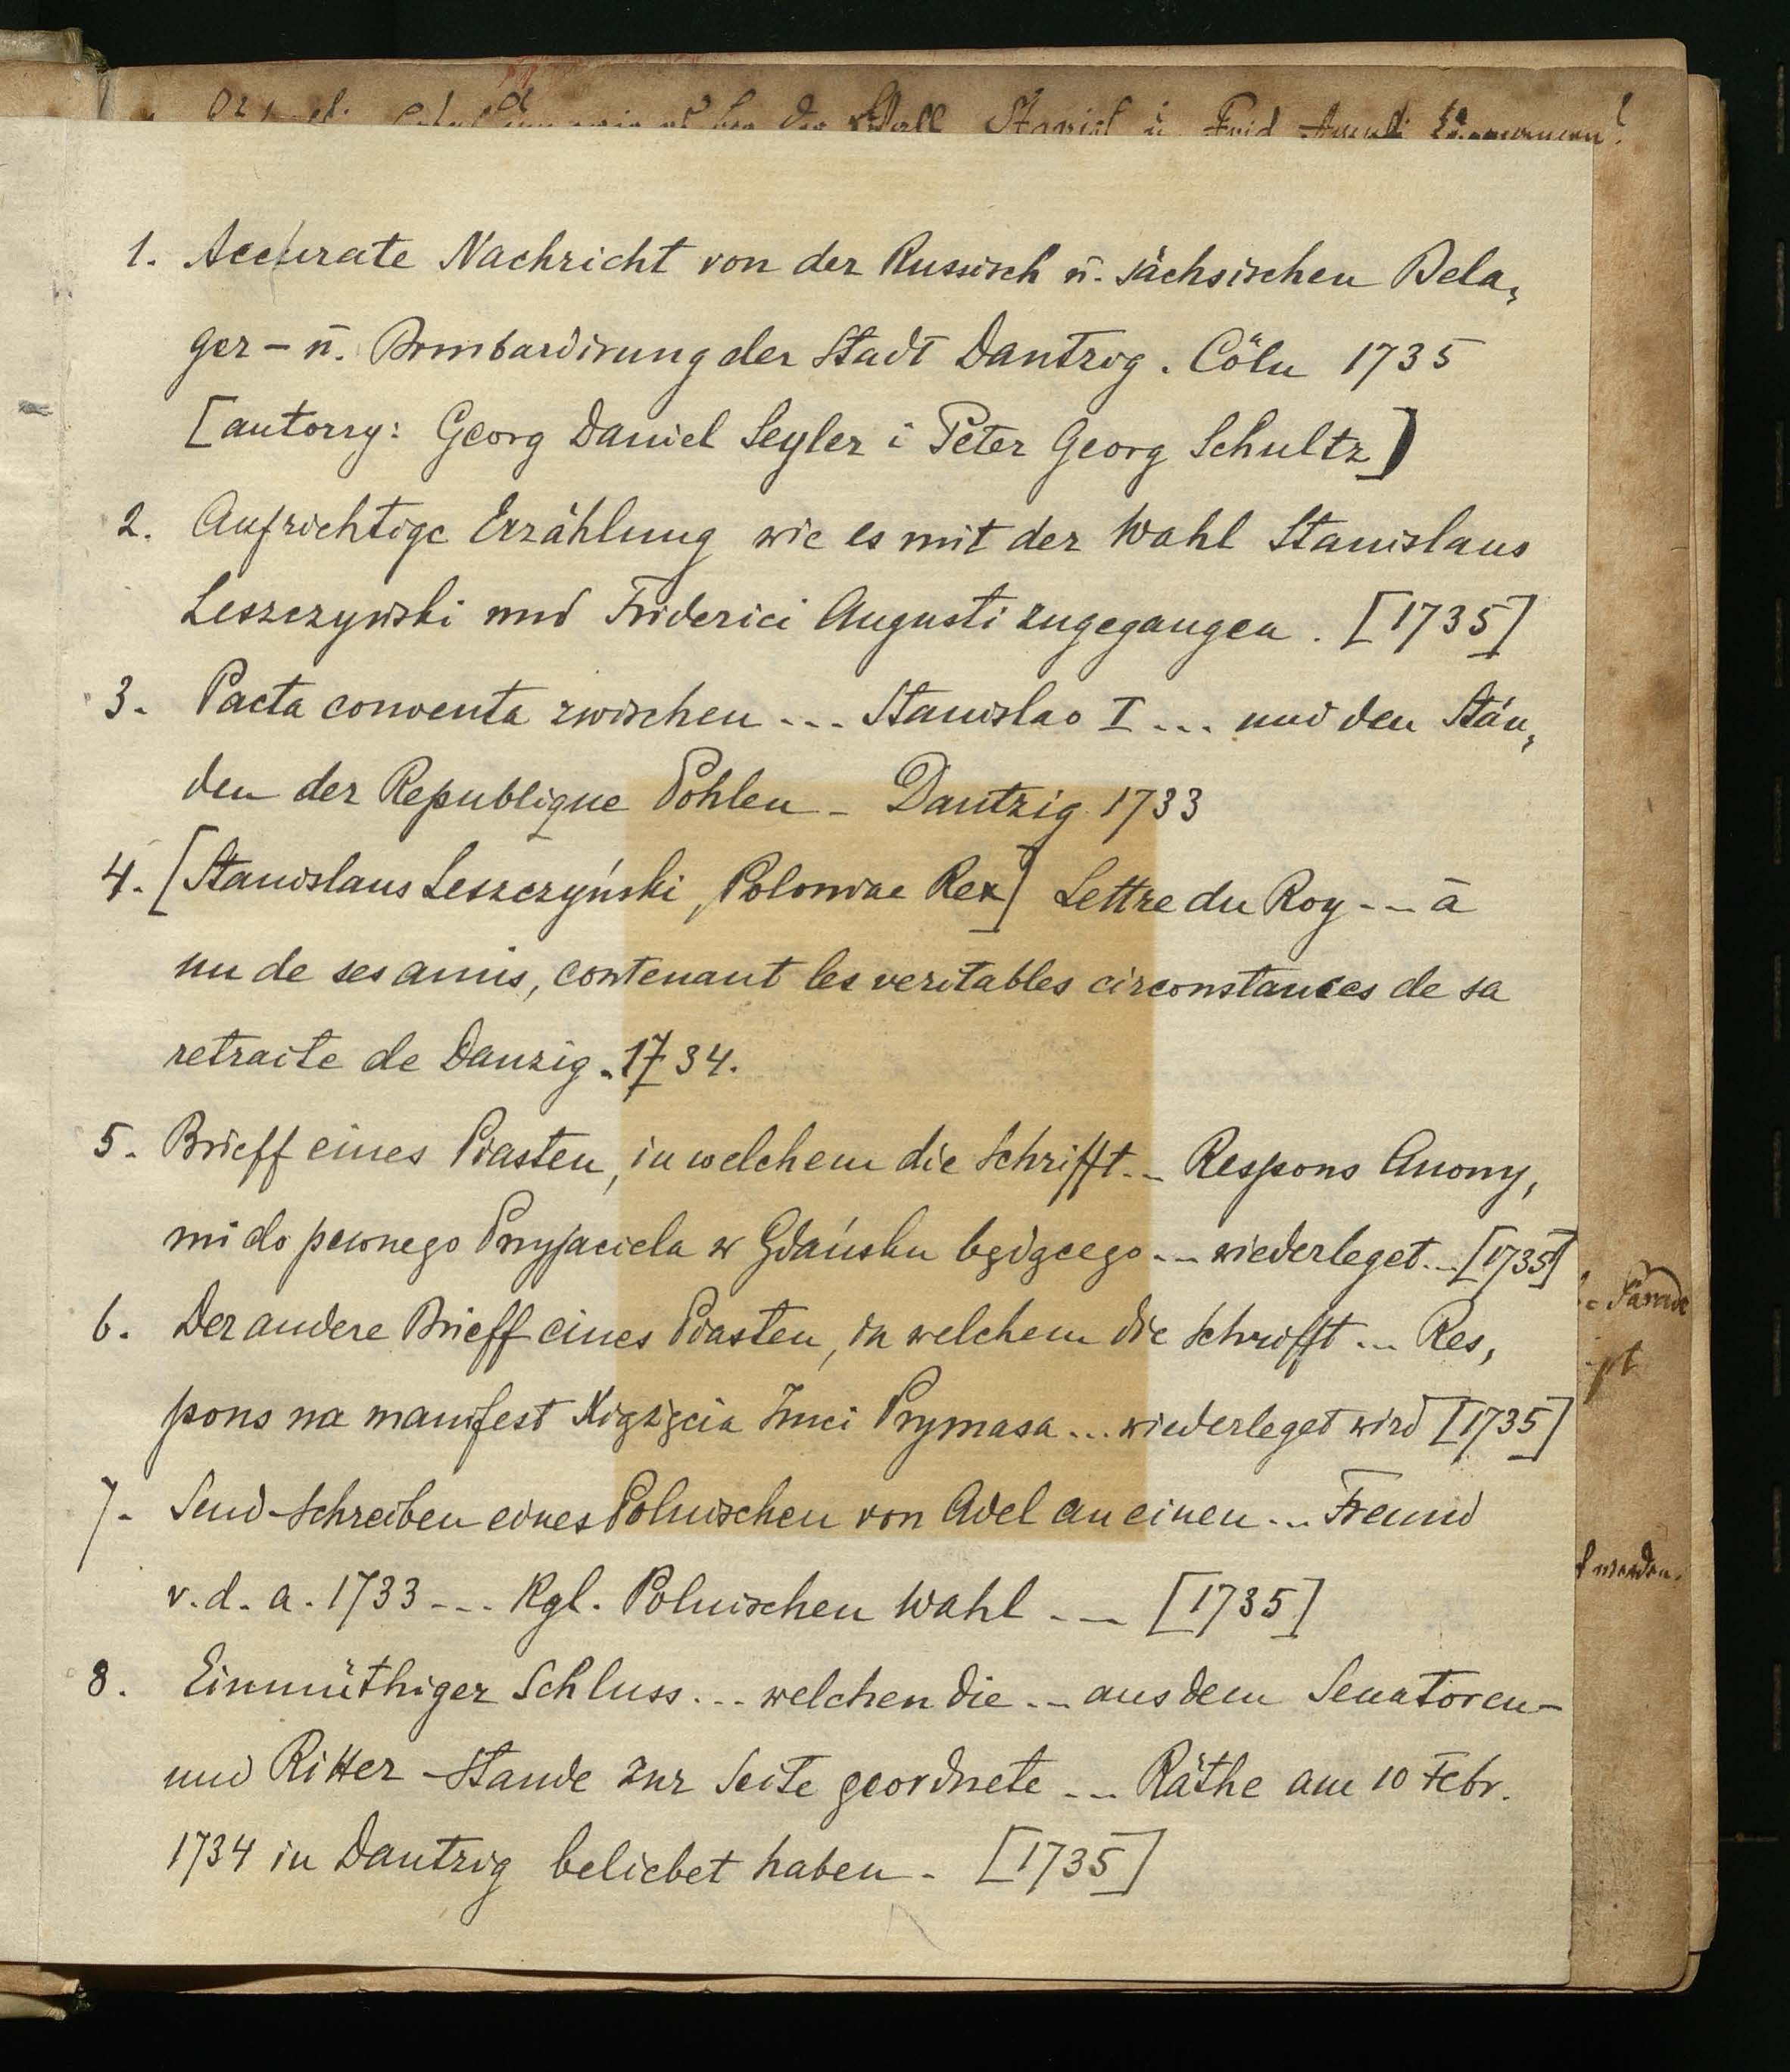 1. Accurate Nachricht von der Russisch u. sächsischen Bela,
ger – u. Bombardirung der Stadt Dantzig. Cöln 1735
[autorzy: Georg Daniel Seyler i Peter Georg Schultz]
2. Aufrichtige Erzählung wie es mit der Wahl Stanislaus
Leszczynski und Friderici Augusti zugegangen. [1735]
3. Pacta conventa zwischen ... Stanislao I ... und den Stän,
den der Republique Pohlen – Dantzig 1733
4. [Stanislaus Leszczyński, Poloniae Rex] Lettre du Roy ... à
un de ses amis, contenant les veritables circonstances de sa
retraite de Danzig. 1734.
5. Brieff eines Piasten, in welchem die Schrifft ... Respons Anony,
mi do pewnego Przyjaciela w Gdańsku będącego ... wiederleget ... [1735]
6. Der andere Brieff eines Piasten, in welchem die Schrifft ... Res,
pons na manifest Xiążęcia Imci Prymasa ... wiederleget wird [1735]
7. Send-Schreiben eines Polnischen von Adel an einen ... Freund
v. d. a. 1733 ... Kgl. Polnischen Wahl ... [1735]
8. Einmüthiger Schluss ... welchen die ... aus dem Senatoren-
und Ritter-Stande zur Seite geordnete ... Räthe am 10 Febr.
1734 in Dantzig beliebet haben. [1735]